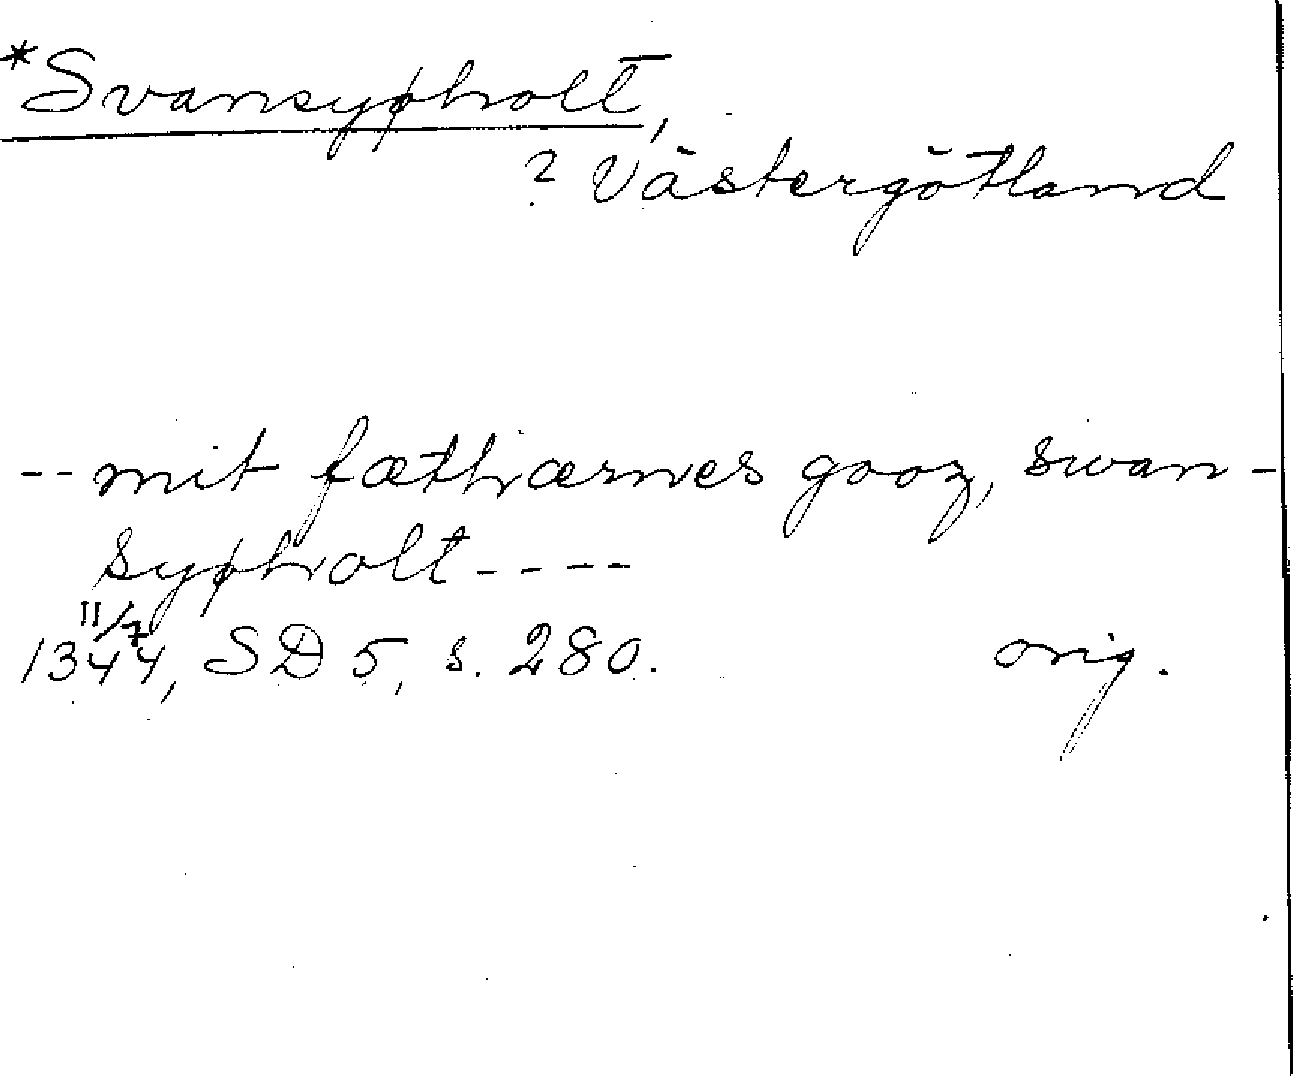 *Svansypholt,
? Västergötland
-- mit fæthærnes gooz, swan-
sypholt ----
11/7
1344, SD 5, s. 280. orig.